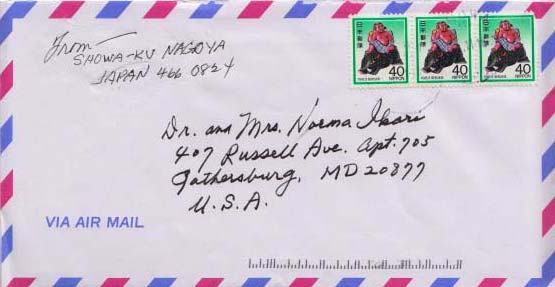 From
SHOWA-KU NAGOYA
JAPAN 466 0824
日本郵便 日本郵便 日本郵便
40 40 40
NIPPON NIPPON NIPPON
Dr. and Mrs. Norma Ikari
407 Russell Ave. Apt. 705
Gathersburg, MD 20877
U.S.A.
VIA AIR MAIL